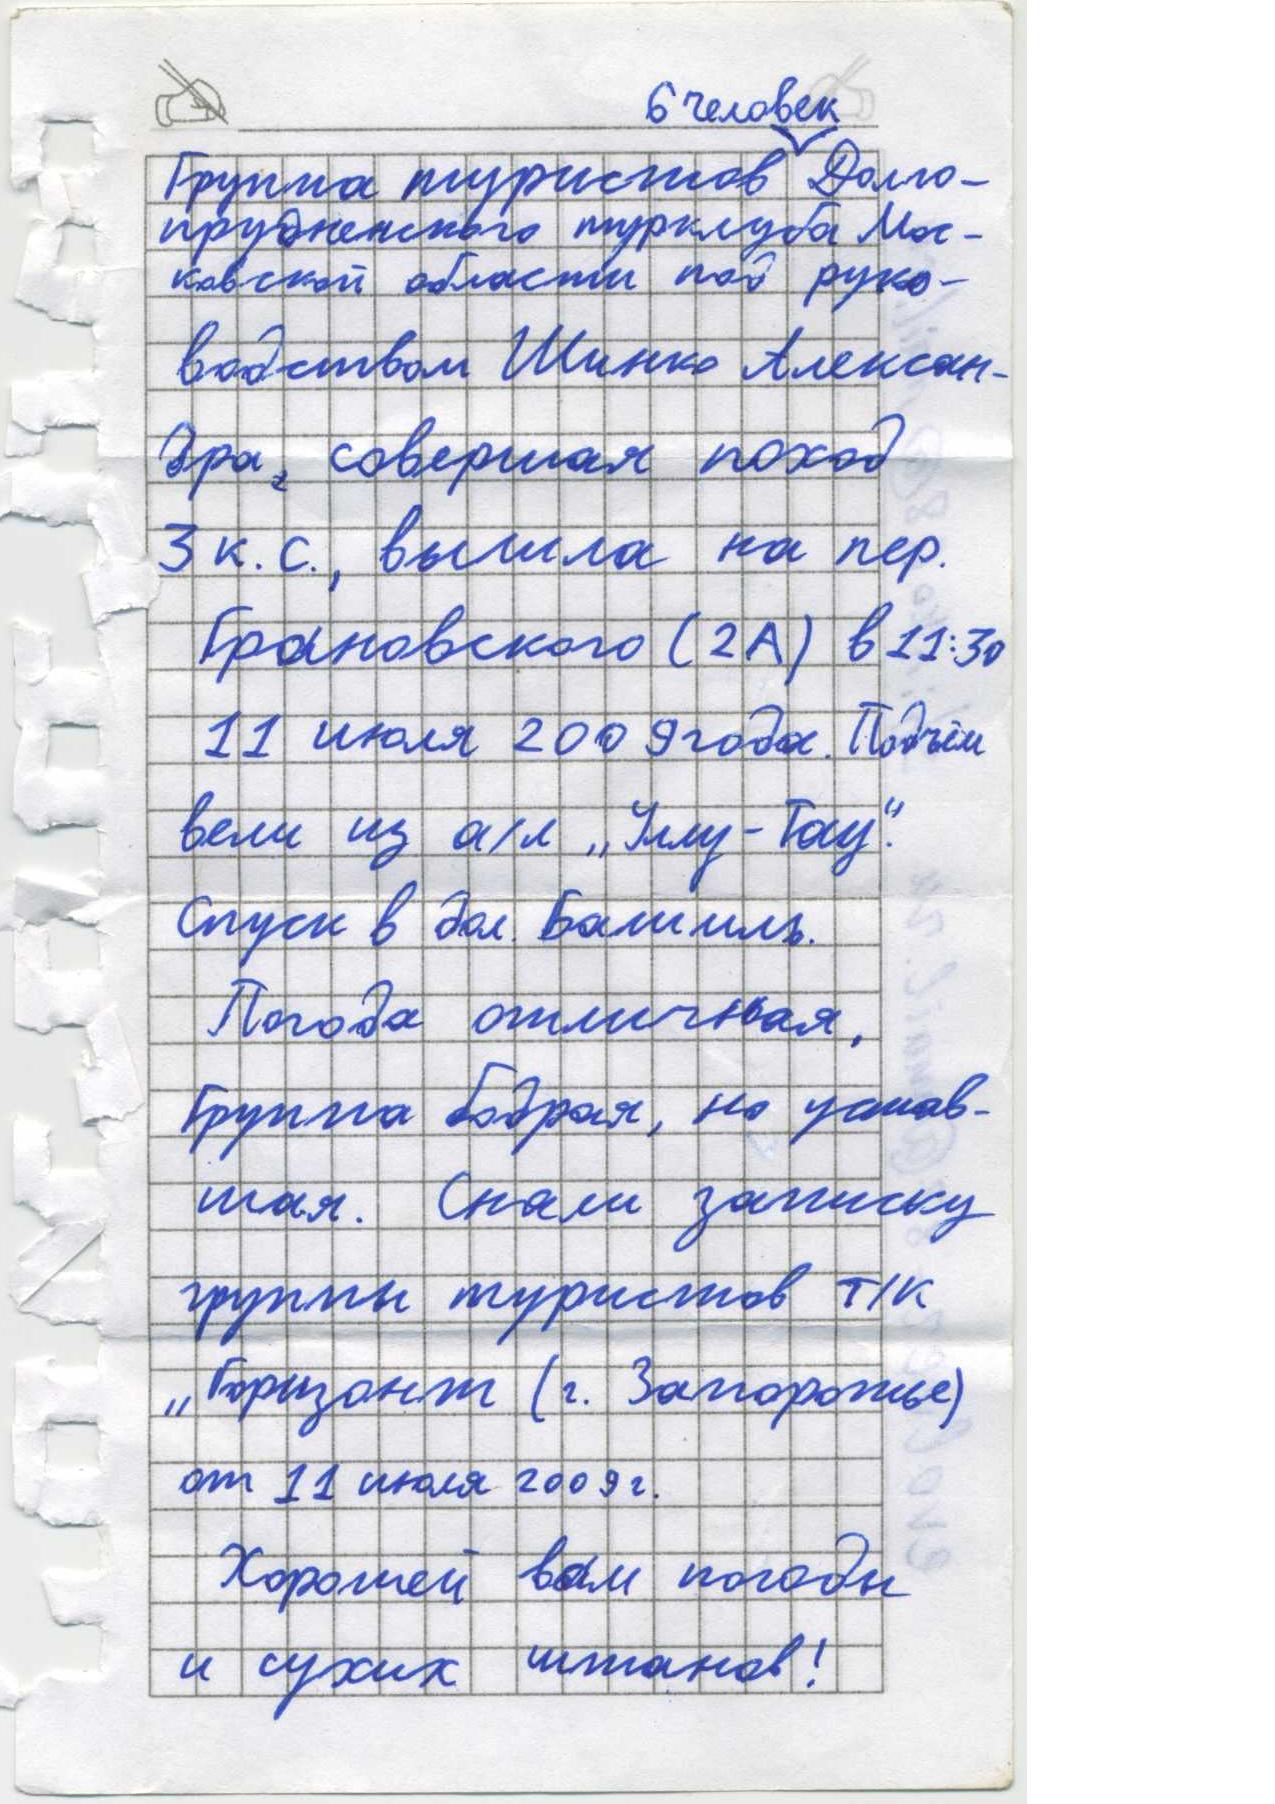 6 человек
Группа туристов Долго-
прудненского турклуба Мос-
ковской области под руко-
водством Шинко Алексан-
дра, совершая поход
3 к.с., вышла на пер.
Грановского (2А) в 11:30
11 июля 2009 года. Подъём
вели из а/л „Уллу-Тау“.
Спуск в дол. Башиль.
Погода отличная,
Группа бодрая, но устав-
шая. Сняли записку
группы туристов т/к
„Горизонт (г. Запорожье)
от 11 июля 2009 г.
Хорошей вам погоды
и сухих штанов!